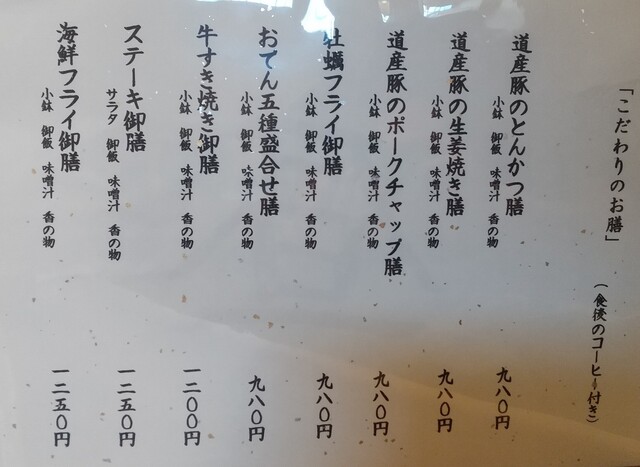 「こだわりのお膳」
（食後のコーヒー付き）
道産豚のとんかつ膳
小鉢 御飯 味噌汁 香の物
九八〇円
道産豚の生姜焼き膳
小鉢 御飯 味噌汁 香の物
九八〇円
道産豚のポークチャップ膳
小鉢 御飯 味噌汁 香の物
九八〇円
牡蠣フライ御膳
小鉢 御飯 味噌汁 香の物
九八〇円
おでん五種盛合せ膳
小鉢 御飯 味噌汁 香の物
九八〇円
牛すき焼き御膳
小鉢 御飯 味噌汁 香の物
一二〇〇円
ステーキ御膳
サラダ 御飯 味噌汁 香の物
一二五〇円
海鮮フライ御膳
小鉢 御飯 味噌汁 香の物
一二五〇円